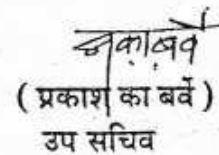 ( प्रकाश का बर्वे )
उप सचिव